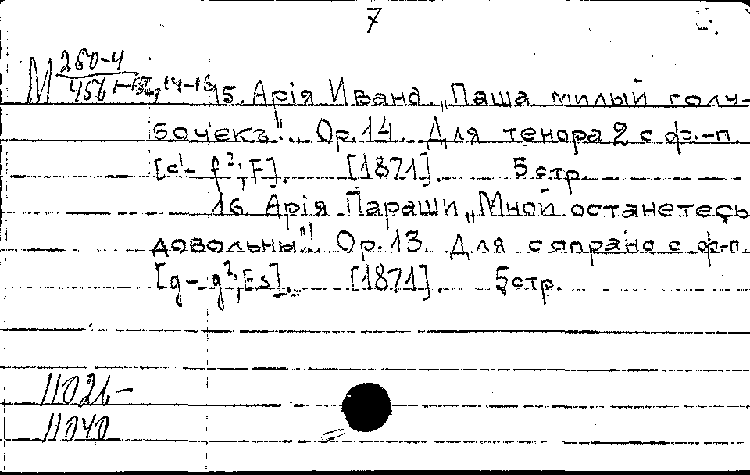 7
М 260-4
456
15. Арія Ивана „Паша милый голу-
бочекъ". Ор.14. Для тенора 2 с ф.-п.
[c¹- f²; F]. [1871]. 5 стр.
16. Арія Параши „Мной останетесь
довольны"! Ор.13. Для сопрано с ф-п.
[g- g²; Es]. [1871]. 5стр.
11026-
11040